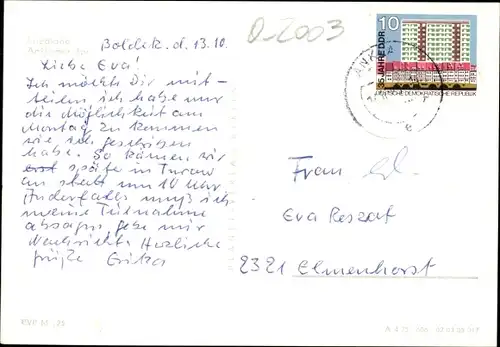 D-2003
10
35 JAHRE DDR
DEUTSCHE DEMOKRATISCHE REPUBLIK
ANK
Boldek. d. 13.10.
Liebe Eva!
Ich möchte Dir mit-
teilen ich habe nur
die Möglichkeit am
Montag zu kommen
wie ich geschrieben
habe. So kämen wir
erst später in
an statt um 10 Uhr
Anderfalls muß ich
meine Teilnahme
absagen, gebe mir
Nachricht. Herzliche
Grüße Erika
Frau
Eva Reszat
2321 Elmenhorst
EVP